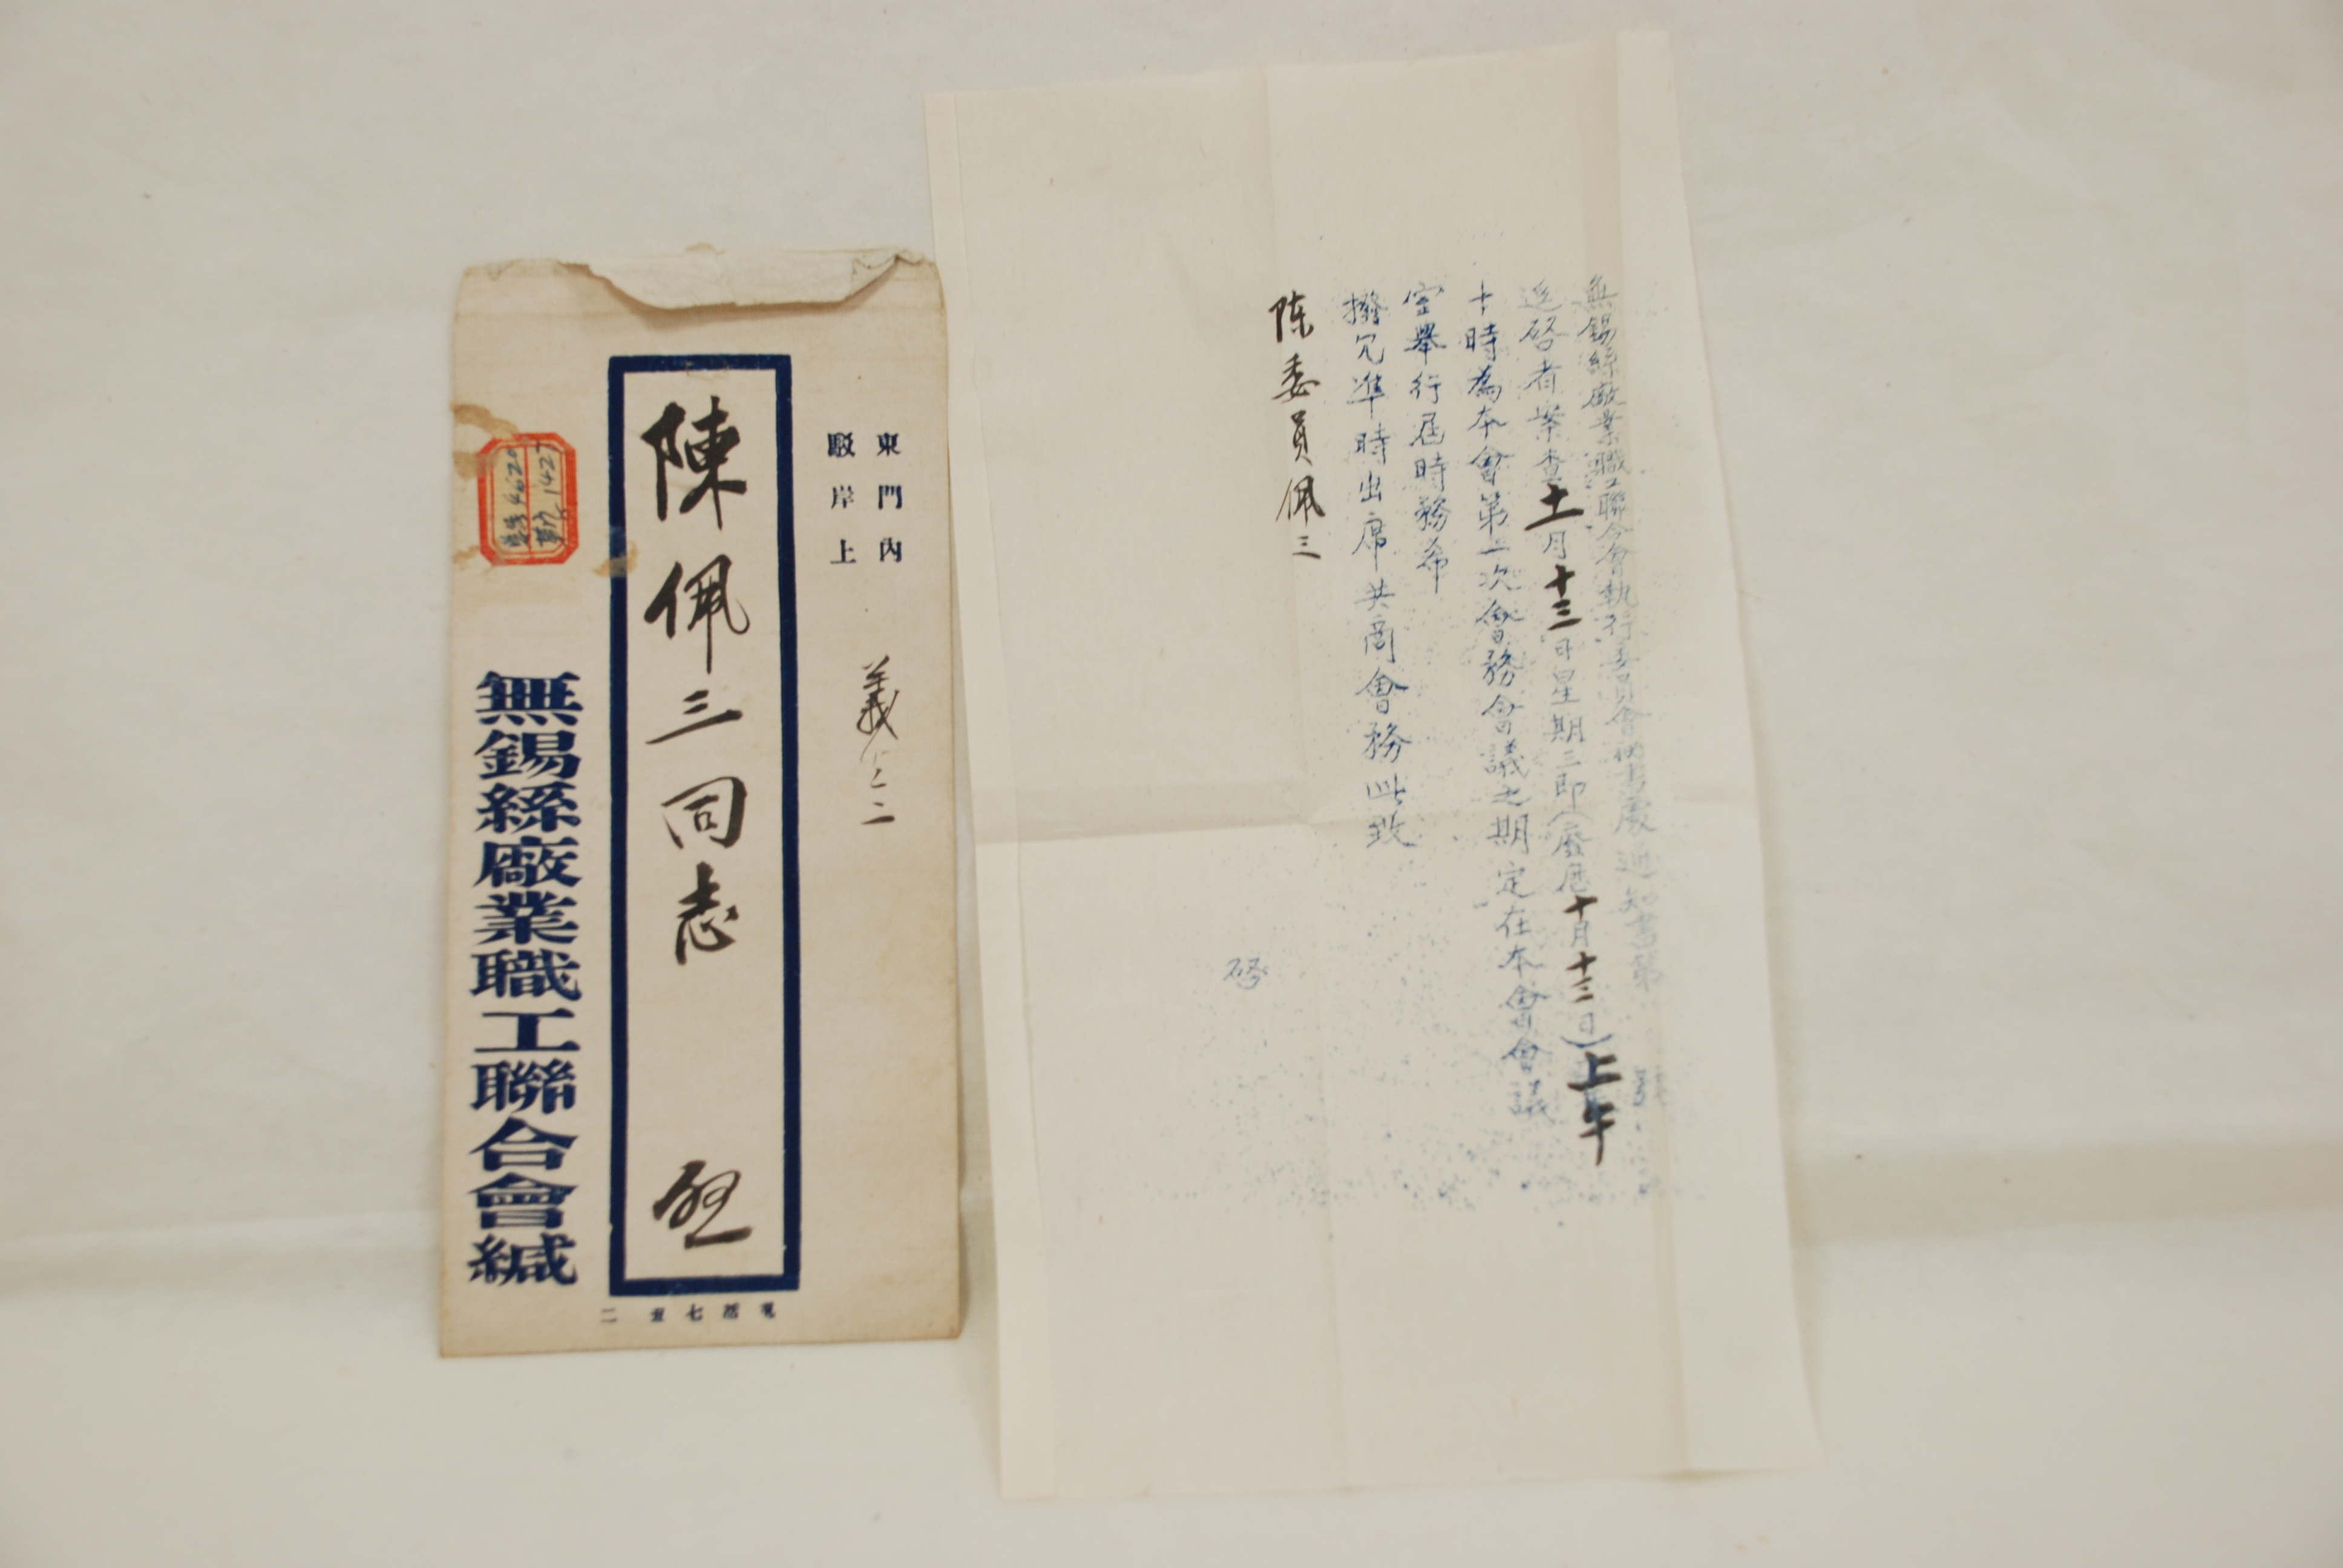 東門內
駁岸上
義仁二
陳佩三同志 啟
無錫絲廠業職工聯合會緘
總號4620
類號1427
無錫絲廠業職工聯合會執行委員會秘書處通知書第 號
逕啓者案查十一月十三日星期三即(廢歷十月十三日)上午
十時為本會第二次會務會議之期定在本會會議
室舉行屆時務希
撥冗準時出席共商會務此致
陈委員佩三
啓